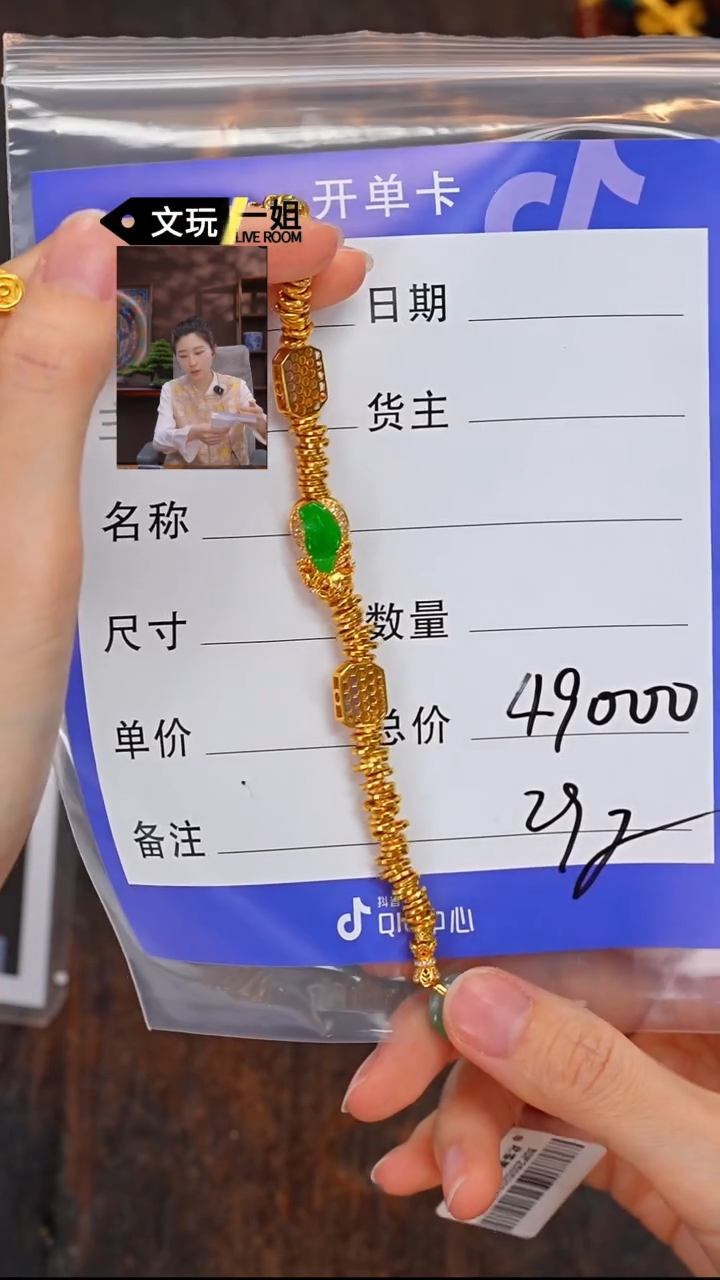 开单卡
文玩 一姐
LIVE ROOM
日期
货主
名称
尺寸
数量
单价
总价 49000
备注 29g
抖音
QIC中心